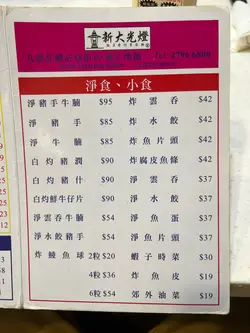 新大光燈
淨食、小食
淨豬手牛腩 $95 炸雲吞 $42
淨豬手 $85 炸水餃 $42
淨牛腩 $85 炸魚片頭 $42
白灼豬潤 $90 炸腐皮魚條 $42
白灼豬什 $90 淨雲吞 $37
白灼鮮牛仔片 $90 淨水餃 $37
淨雲吞牛腩 $54 淨魚蛋 $37
淨水餃豬手 $54 淨魚片頭 $37
炸鯪魚球 2粒 $20 蝦子時菜 $30
4粒 $36 炸魚皮 $19
6粒 $54 郊外油菜 $19